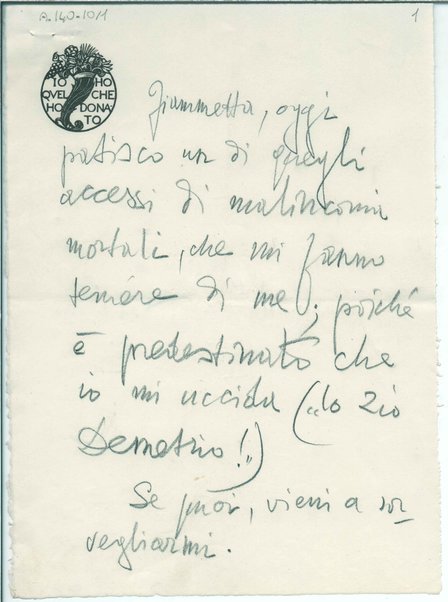 A.140-10/1
1
IO HO
QVEL CHE
HO DONA
TO
Giammetta, oggi
patisco un di quegli
accessi di malinconia
mortali, che mi fanno
temére di me; poiché
è predestinato che
io mi uccida („lo zio
Demetrio!”)
Se puoi, vieni a sor
vegliarmi.